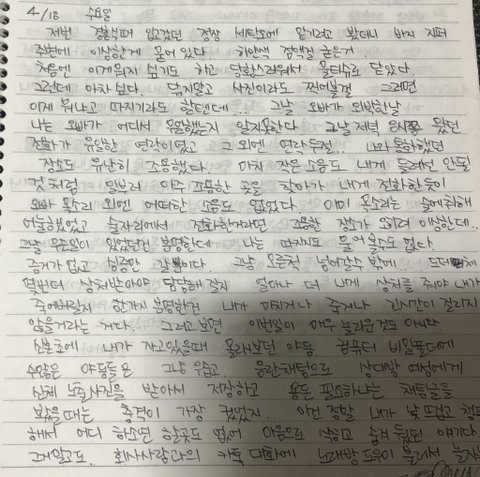 4/18 수요일
저번 결혼식때 입고갔던 정장 세탁소에 맡기려고 봤더니 바지 지퍼
주변에 이상한게 묻어있다. 하얀색 점액질 굳은거..
처음에 이게뭔지 싶기도 하고 당황스러워서 물티슈로 닦았다.
그런데 아차 싶다. 닦지말고 사진이라도 찍어놓을걸 그러면
이게 뭐냐고 따지기라도 할텐데... 그날 오빠가 외박한날
나는 오빠가 어디서 뭘했는지 알지못한다. 그날저녁 8시쯤 왔던
전화가 유일한 연락이었고 그 외엔 연락두절.. 나와 통화했던
장소도 유난히 조용했다. 마치 작은 소음도 내게 들려선 안될
것처럼 일부러 아주 조용한 곳을 찾아가 내게 전화한듯이
오빠 목소리 외엔 어떠한 소음도 없었다. 이미 목소리는 술에취해
어눌했었고 술자리에서 전화한거라면 조용한 장소가 오히려 이상한데..
그날 무슨일이 있었던건 분명한데 나는 따지지도 물어볼수도 없다.
증거가 없고 심증만 갈뿐이다. 그냥 모른척 넘어갈수 밖에.. 도대체
몇번더 상처받아야 담담해 질지 얼마나 더 내게 상처를 줘야 내가
죽어버릴지 한가지 분명한건 내가 미치거나 죽거나 긴시간이 걸리지
않을거라는 거다. 그러고보면 이번일이 매우 놀라운것도 아니다.
신혼초에 내가 자고있을때 몰래보던 야동, 컴퓨터 비밀폴더에
수많은 야동들은 그냥 우습고 음란채팅으로 상대방 여성에게
신체 노출사진을 받아서 저장하고 용돈 필요하냐는 채팅글을
봤을때는 충격이 가장 컸었지.. 이건 정말 내가 낯 뜨겁고
해서 어디 하소연 할곳도 없어 마음으로 숨겨 뒀던 얘기다.
그래말고도, 회사사람과의 카톡 대화에 노래방 도우미 불러서